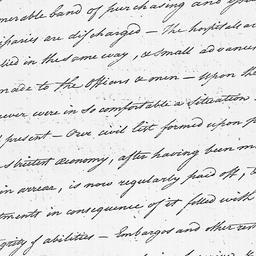 numerable band of purchasing and
issaries are discharged — The hospitals are
lied in the same way, & small advances
made to the officers & men — Upon the
never were in so comfortable a situation
present — Our civil list formed upon
strictest œconomy, after having been
in arrear, is now regularly paid off, &
tments in consequence of it filled with
grity & abilities — Embargos and other